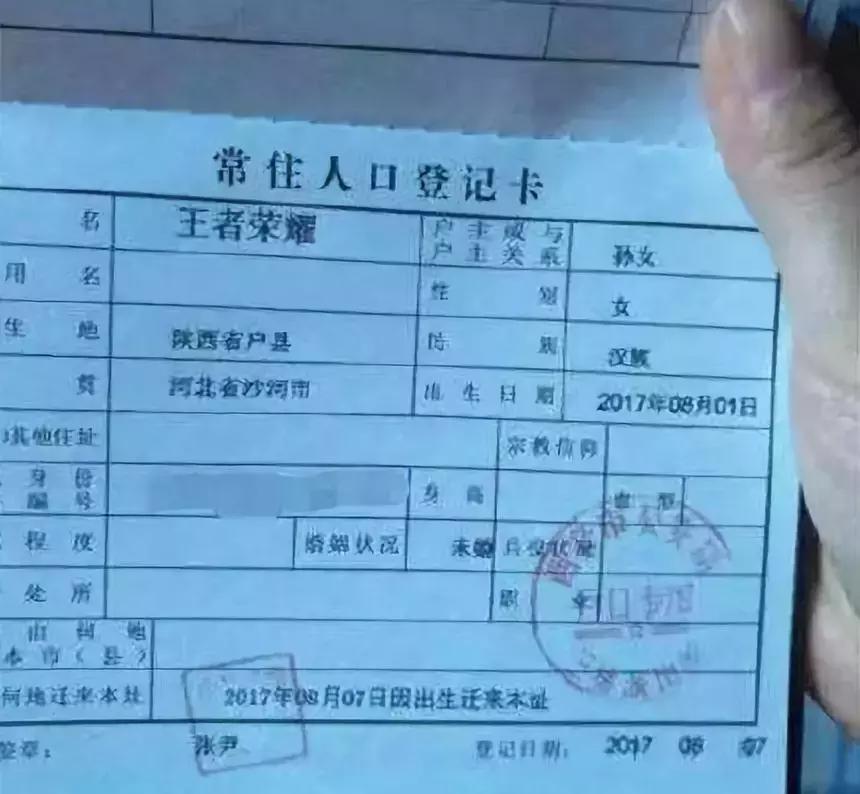 常住人口登记卡
名 王者荣耀 户主或与户主关系 孙女
用名 性别 女
生地 陕西省户县 民族 汉族
贯 河北省沙河市 出生日期 2017年08月01日
其他住址 宗教信仰
身份 编号 身高 血型
程度 婚姻状况 未婚 兵役状况
处所 职
由何地
本市(县)
何地迁来本址 2017年08月07日因出生迁来本址
签章： 张尹 登记日期： 2017 08 07